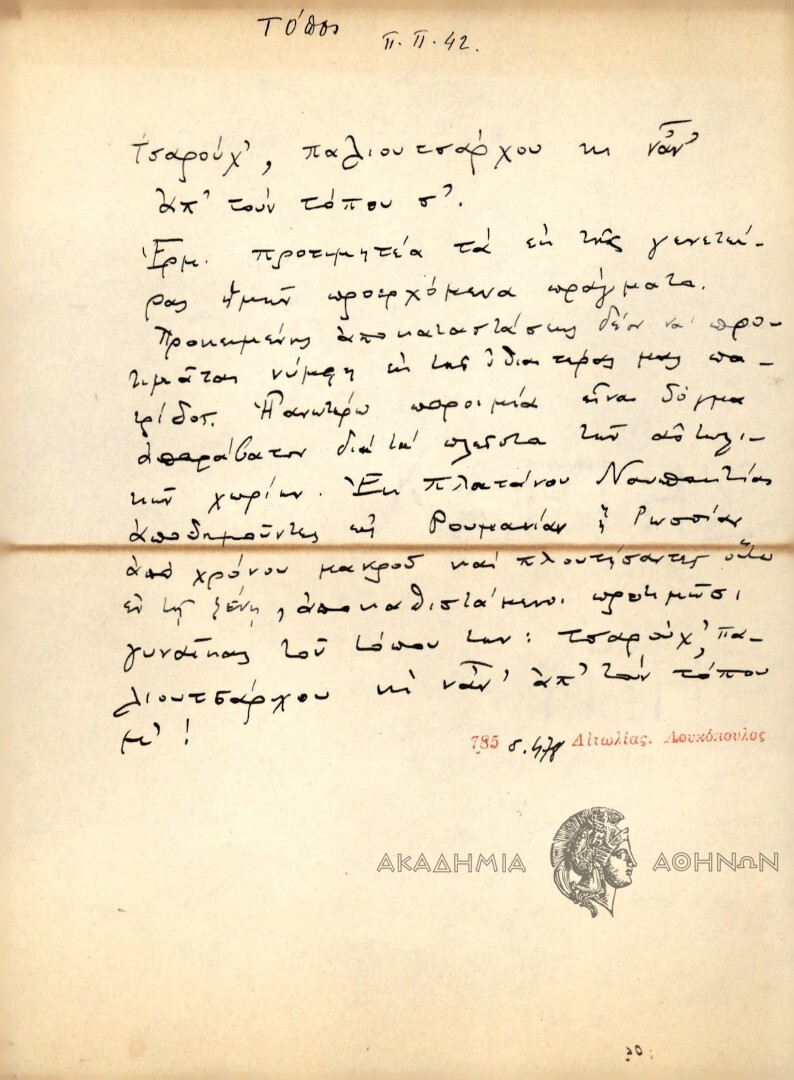 τόπος
Π.Π. 42.
Τσαρούχ', παλιουτσάρχου κι νἆν'
ἀπ' τοὺν τόπου σ'.
Ἑρμ. προτιμητέα τὰ ἐκ τῆς γενετεί-
ρας ἡμῶν προερχόμενα πράγματα.
Προκειμένης ἀποκαταστάσεως δέον νὰ προ-
τιμᾶται νύμφη ἐκ τῆς ἰδιαιτέρας μας πα-
τρίδος. Ἡ ἀνωτέρω παροιμία εἶναι δόγμα
ἀπαράβατον διὰ τὰ πλεῖστα τῶν αἰτωλι-
κῶν χωρίων. Ἐκ Πλατάνου Ναυπακτίας
ἀποδημοῦντες εἰς Ρουμανίαν ἢ Ρωσσίαν
ἀπὸ χρόνου μακροῦ καὶ πλουτήσαντες οὕτω
ἐν τῇ ξένῃ, ἀποκαθιστάμενοι προτιμῶσι
γυναῖκας τοῦ τόπου των: τσαρούχ', πα-
λιουτσάρχου κὶ νἆν' ἀπ' τοὺν τόπου
μ'!
785 σ. 478 Αἰτωλίας. Λουκόπουλος
ΑΚΑΔΗΜΙΑ ΑΘΗΝΩΝ